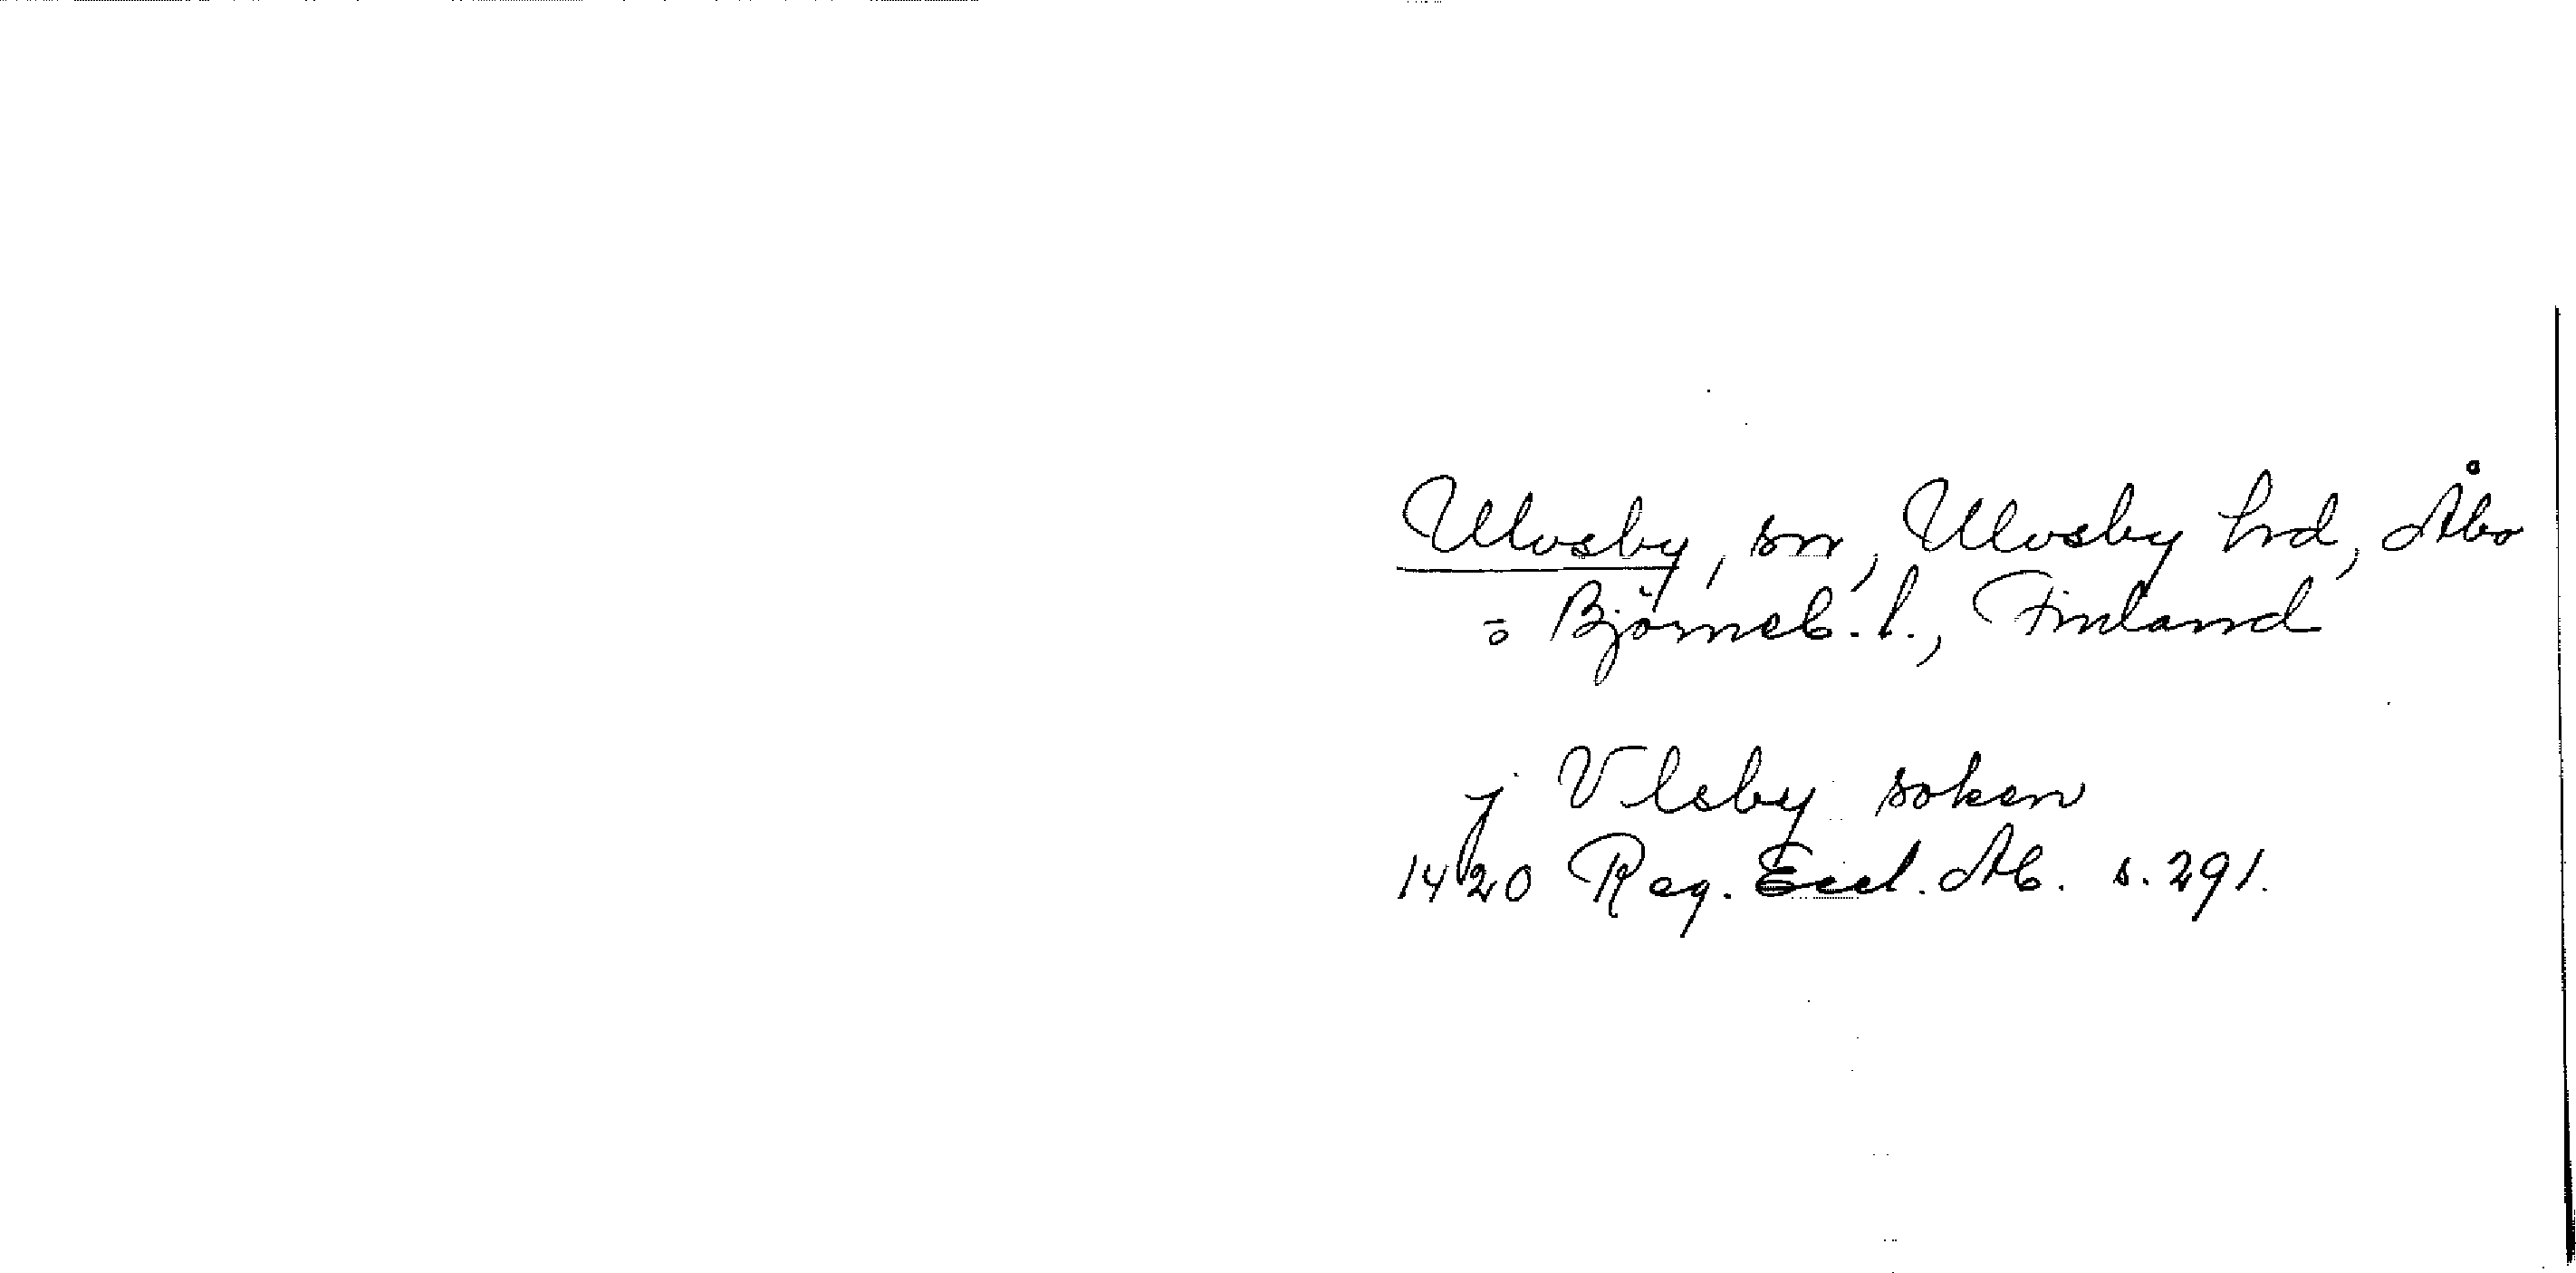 Ulvsby, sn, Ulvsby hd, Åbo
o Björneb. l., Finland
j Vlsby soken
1420 Reg. Eccl. Ab. s. 291.